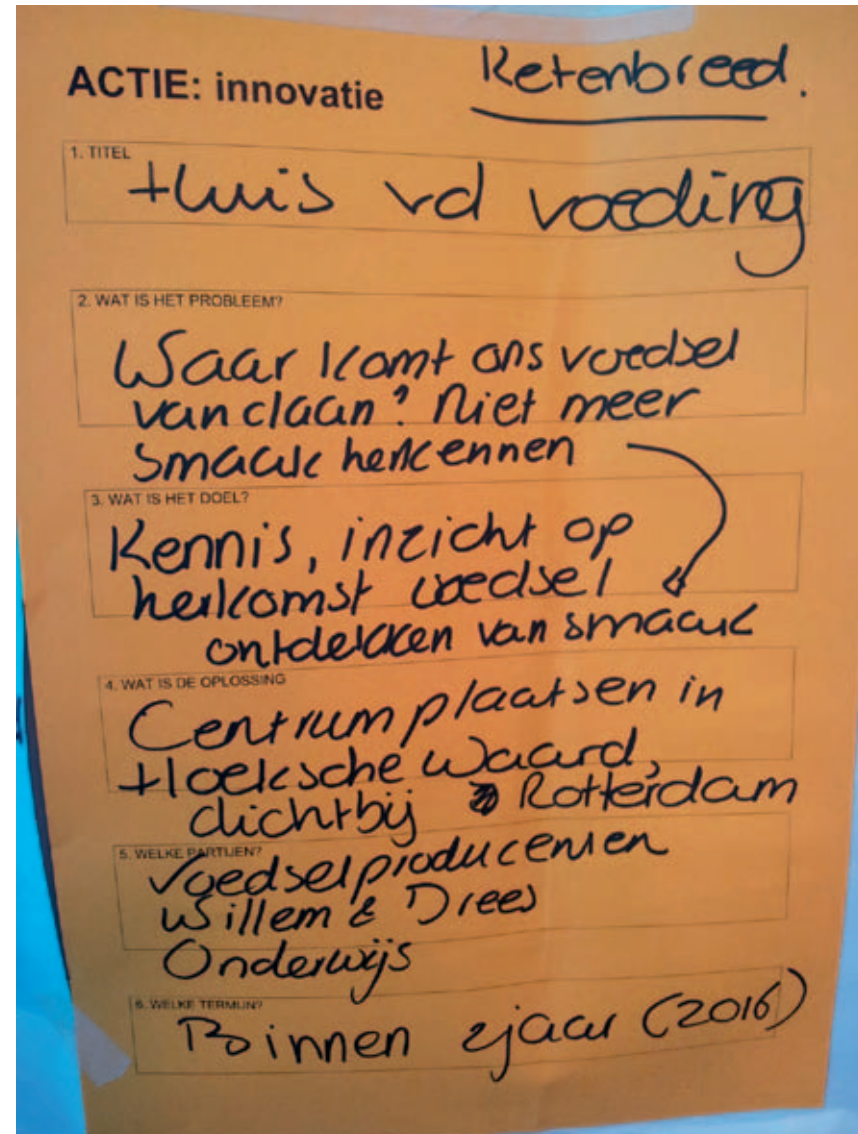 ACTIE: innovatie
Ketenbreed.
1. TITEL
Huis vd voeding
2. WAT IS HET PROBLEEM?
Waar komt ons voedsel
vandaan? Niet meer
smaak herkennen
3. WAT IS HET DOEL?
Kennis, inzicht op
herkomst voedsel
ontdekken van smaak
4. WAT IS DE OPLOSSING
Centrum plaatsen in
Hoeksche Waard,
dichtbij Rotterdam
5. WELKE PARTIJEN?
Voedselproducenten
Willem & Drees
Onderwijs
6. WELKE TERMIJN?
Binnen 2jaar (2016)